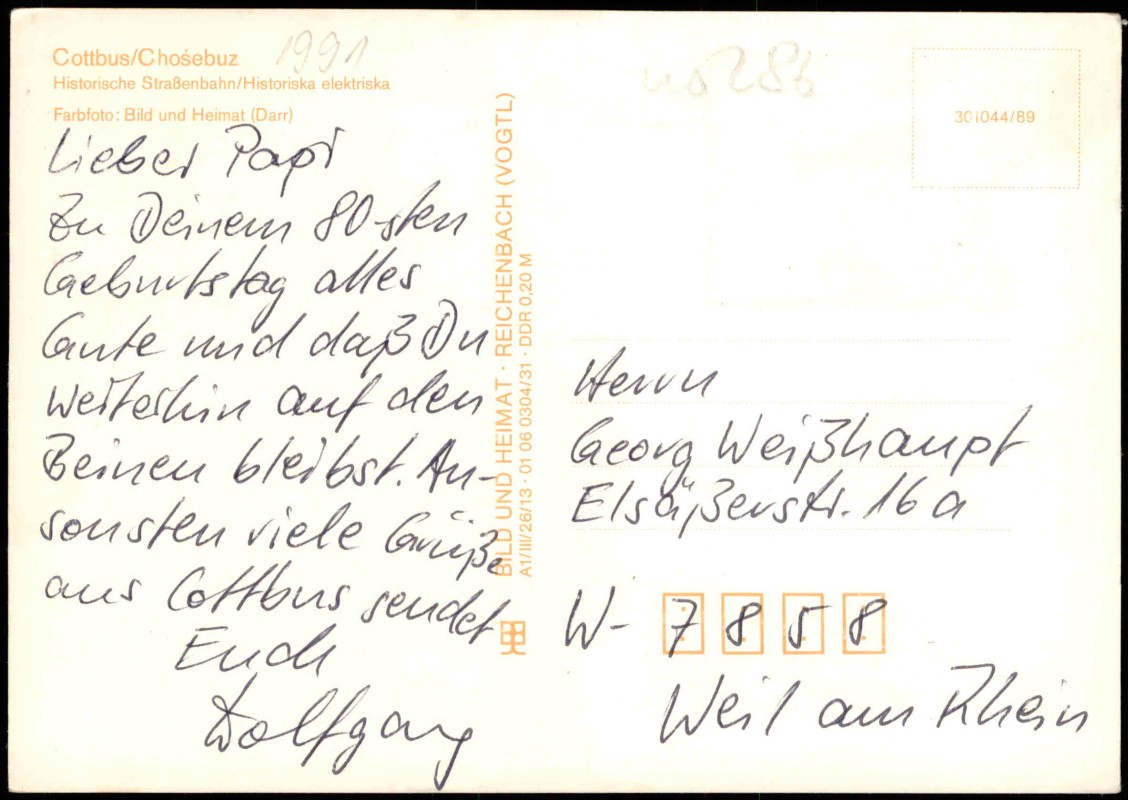 Cottbus/Chośebuz
1991
Historische Straßenbahn/Historiska elektriska
Farbfoto: Bild und Heimat (Darr)
Lieber Papi
Zu Deinem 80-sten
Geburtstag alles
Gute und daß Du
Weiterhin auf den
Beinen bleibst. An-
sonsten viele Grüße
aus Cottbus sendet
Euch
Wolfgang
BILD UND HEIMAT · REICHENBACH (VOGTL)
A1/III/26/13 · 01 06 0304/31 · DDR 0,20 M
301044/89
Herrn
Georg Weißhaupt
Elsäßerstr. 16a
W- 7858
Weil am Rhein